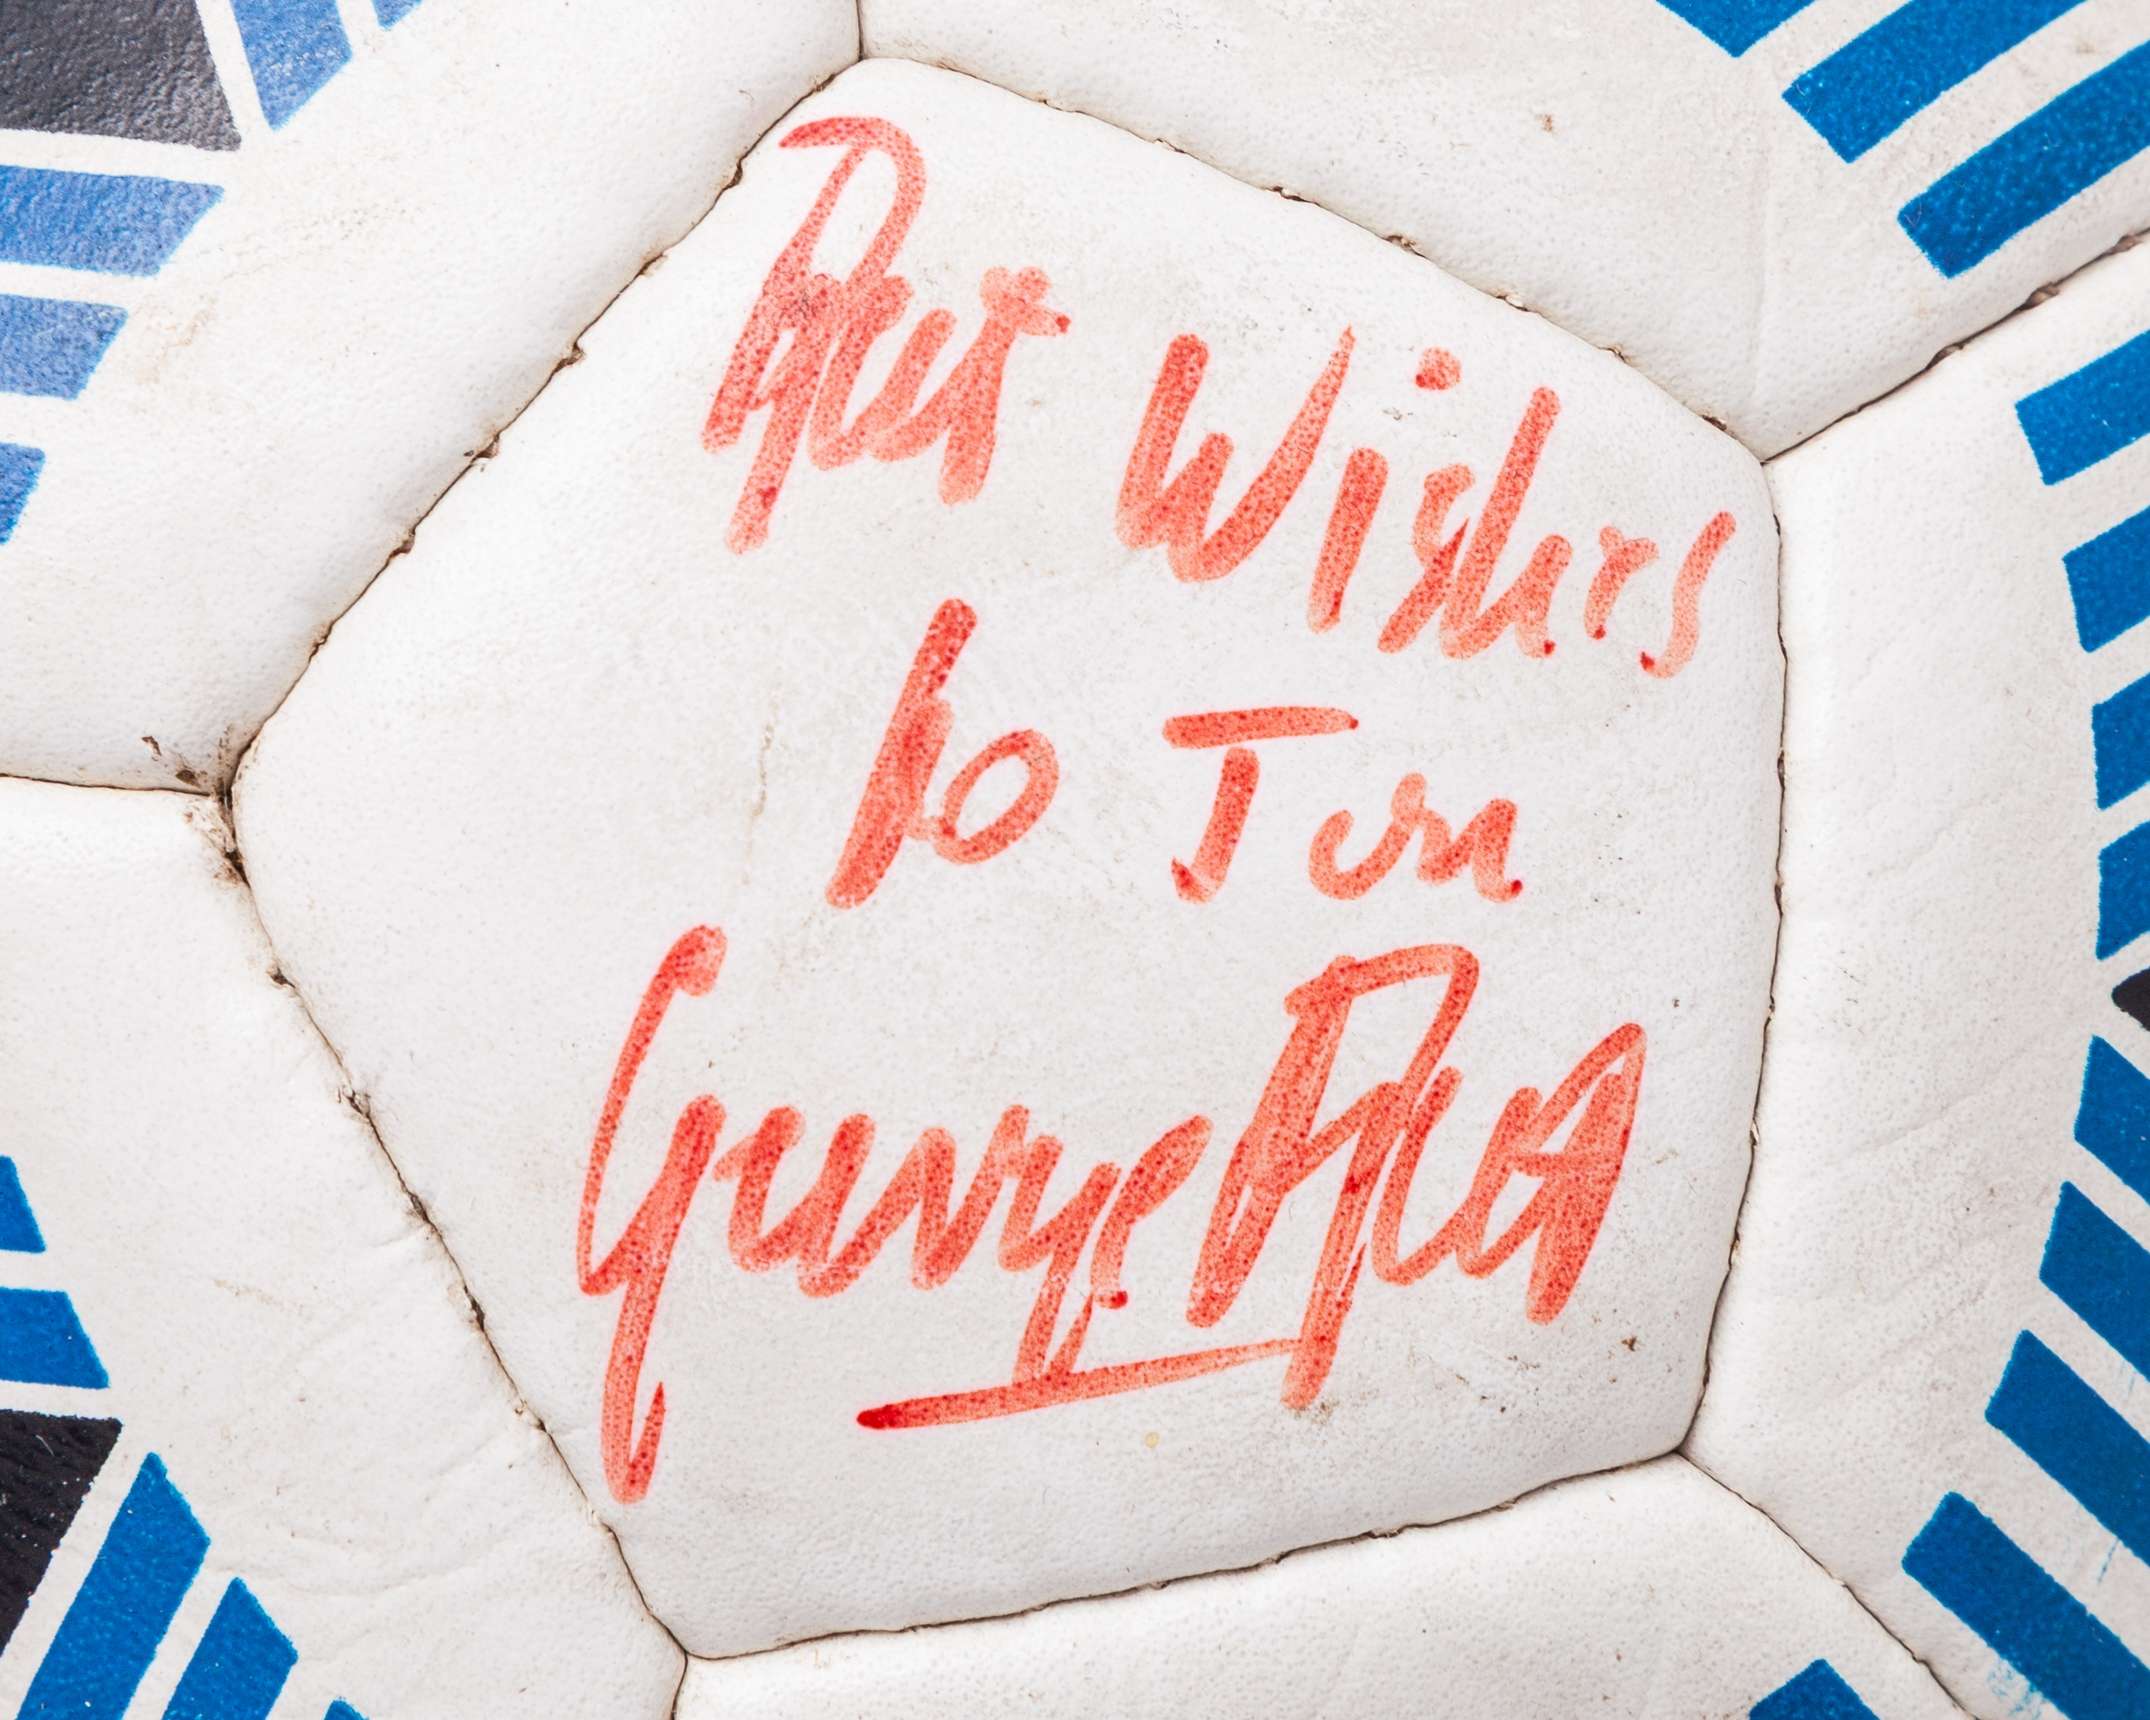 Best Wishes
to Ton
George Best